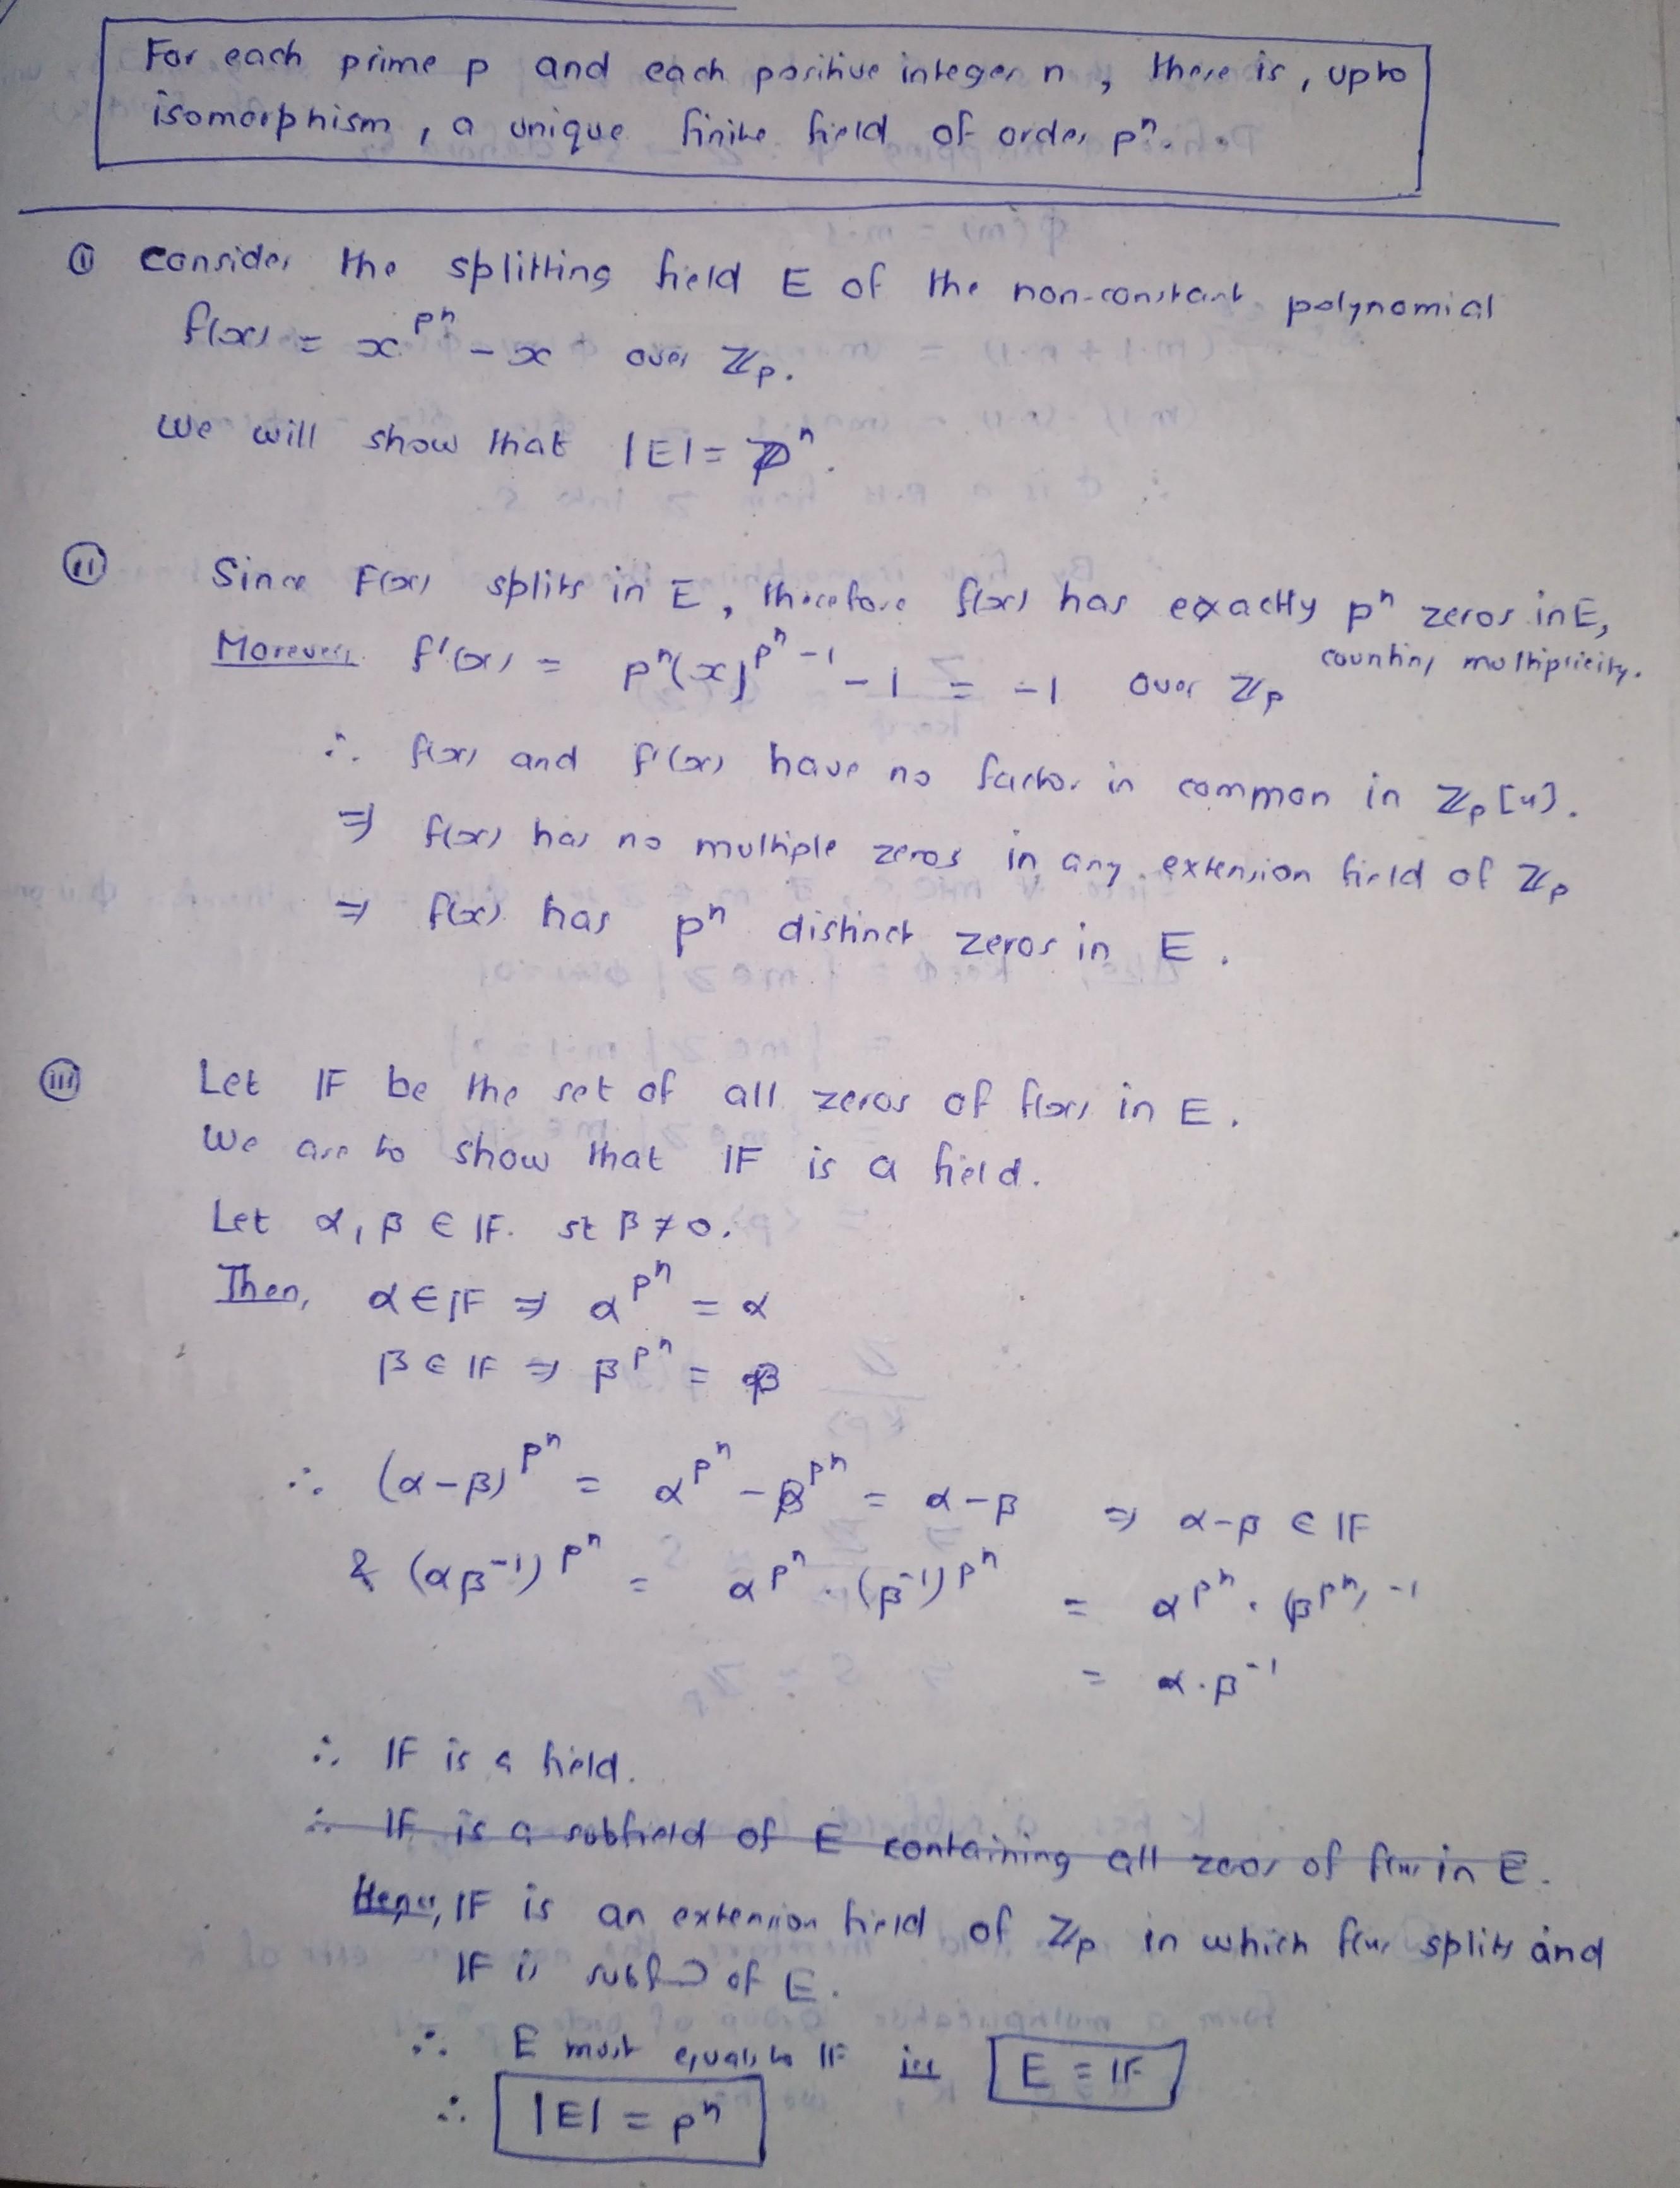 For each prime p and each positive integer n, there is, upto
isomorphism, a unique finite field of order pⁿ.
(i) Consider the splitting field E of the non-constant polynomial
f(x) = x^{pⁿ} - x over ℤp.
We will show that |E| = pⁿ.
(ii) Since f(x) splits in E, therefore f(x) has exactly pⁿ zeros in E,
counting multiplicity.
Moreover, f'(x) = pⁿ(x)^{pⁿ-1} - 1 = -1 over ℤp
∴ f(x) and f'(x) have no factor in common in ℤp[x].
⇒ f(x) has no multiple zeros in any extension field of ℤp
⇒ f(x) has pⁿ distinct zeros in E.
(iii) Let IF be the set of all zeros of f(x) in E.
We are to show that IF is a field.
Let α, β ∈ IF. st β ≠ 0.
Then, α ∈ IF ⇒ α^{pⁿ} = α
β ∈ IF ⇒ β^{pⁿ} = β
∴ (α-β)^{pⁿ} = α^{pⁿ} - β^{pⁿ} = α-β ⇒ α-β ∈ IF
& (αβ⁻¹)^{pⁿ} = α^{pⁿ} · (β⁻¹)^{pⁿ} = α^{pⁿ} · (β^{pⁿ})⁻¹
= α·β⁻¹
∴ IF is a field.
∴ IF is a subfield of E containing all zeros of f(x) in E.
Hence, IF is an extension field of ℤp in which f(x) splits and
IF is of E.
∴ E must equals to IF ie E = IF
∴ |E| = pⁿ